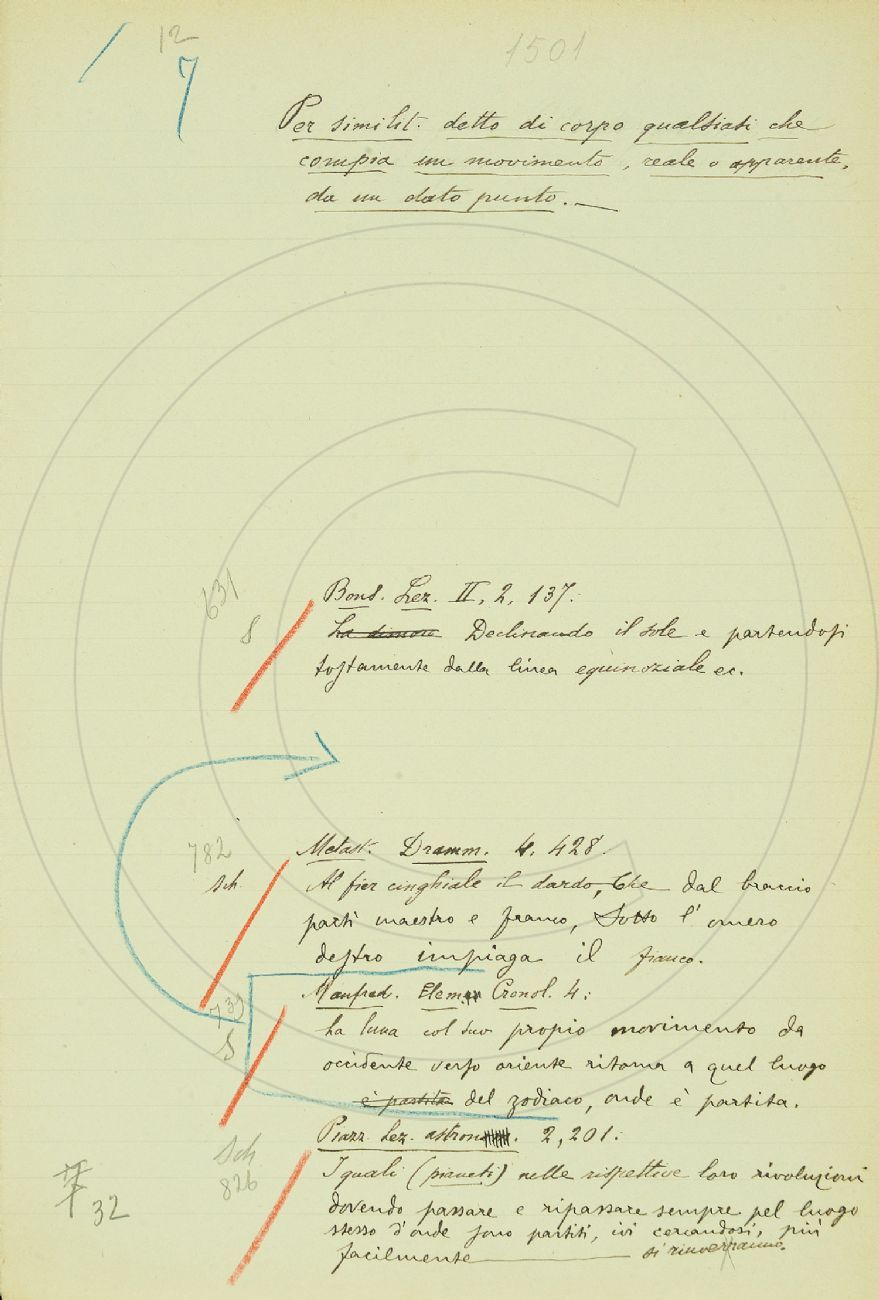 12
7
1501
Per similit. detto di corpo qualsiasi che
compia un movimento, reale o apparente,
da un dato punto.
631
S
Bond. Lez. II, 2, 137:
La dimora Declinando il sole e partendosi
tostamente dalla linea equinoziale ec.
782
Sch.
Metast. Dramm. 4. 428.
Al fier cinghiale il dardo, Che dal braccio
partì maestro e franco, Sotto l'omero
destro impiaga il fianco.
739
S
Manfred. Elem. Cronol. 4:
La luna col suo propio movimento da
occidente verso oriente ritorna a quel luogo
è partita del zodiaco, onde è partita.
Sch
826
Piazz. Lez. astron. 2, 201:
I quali (pianeti) nelle rispettive loro rivoluzioni
dovendo passare e ripassare sempre pel luogo
stesso d'onde sono partiti, ivi cercandosi, più
facilmente si rinverranno.
32